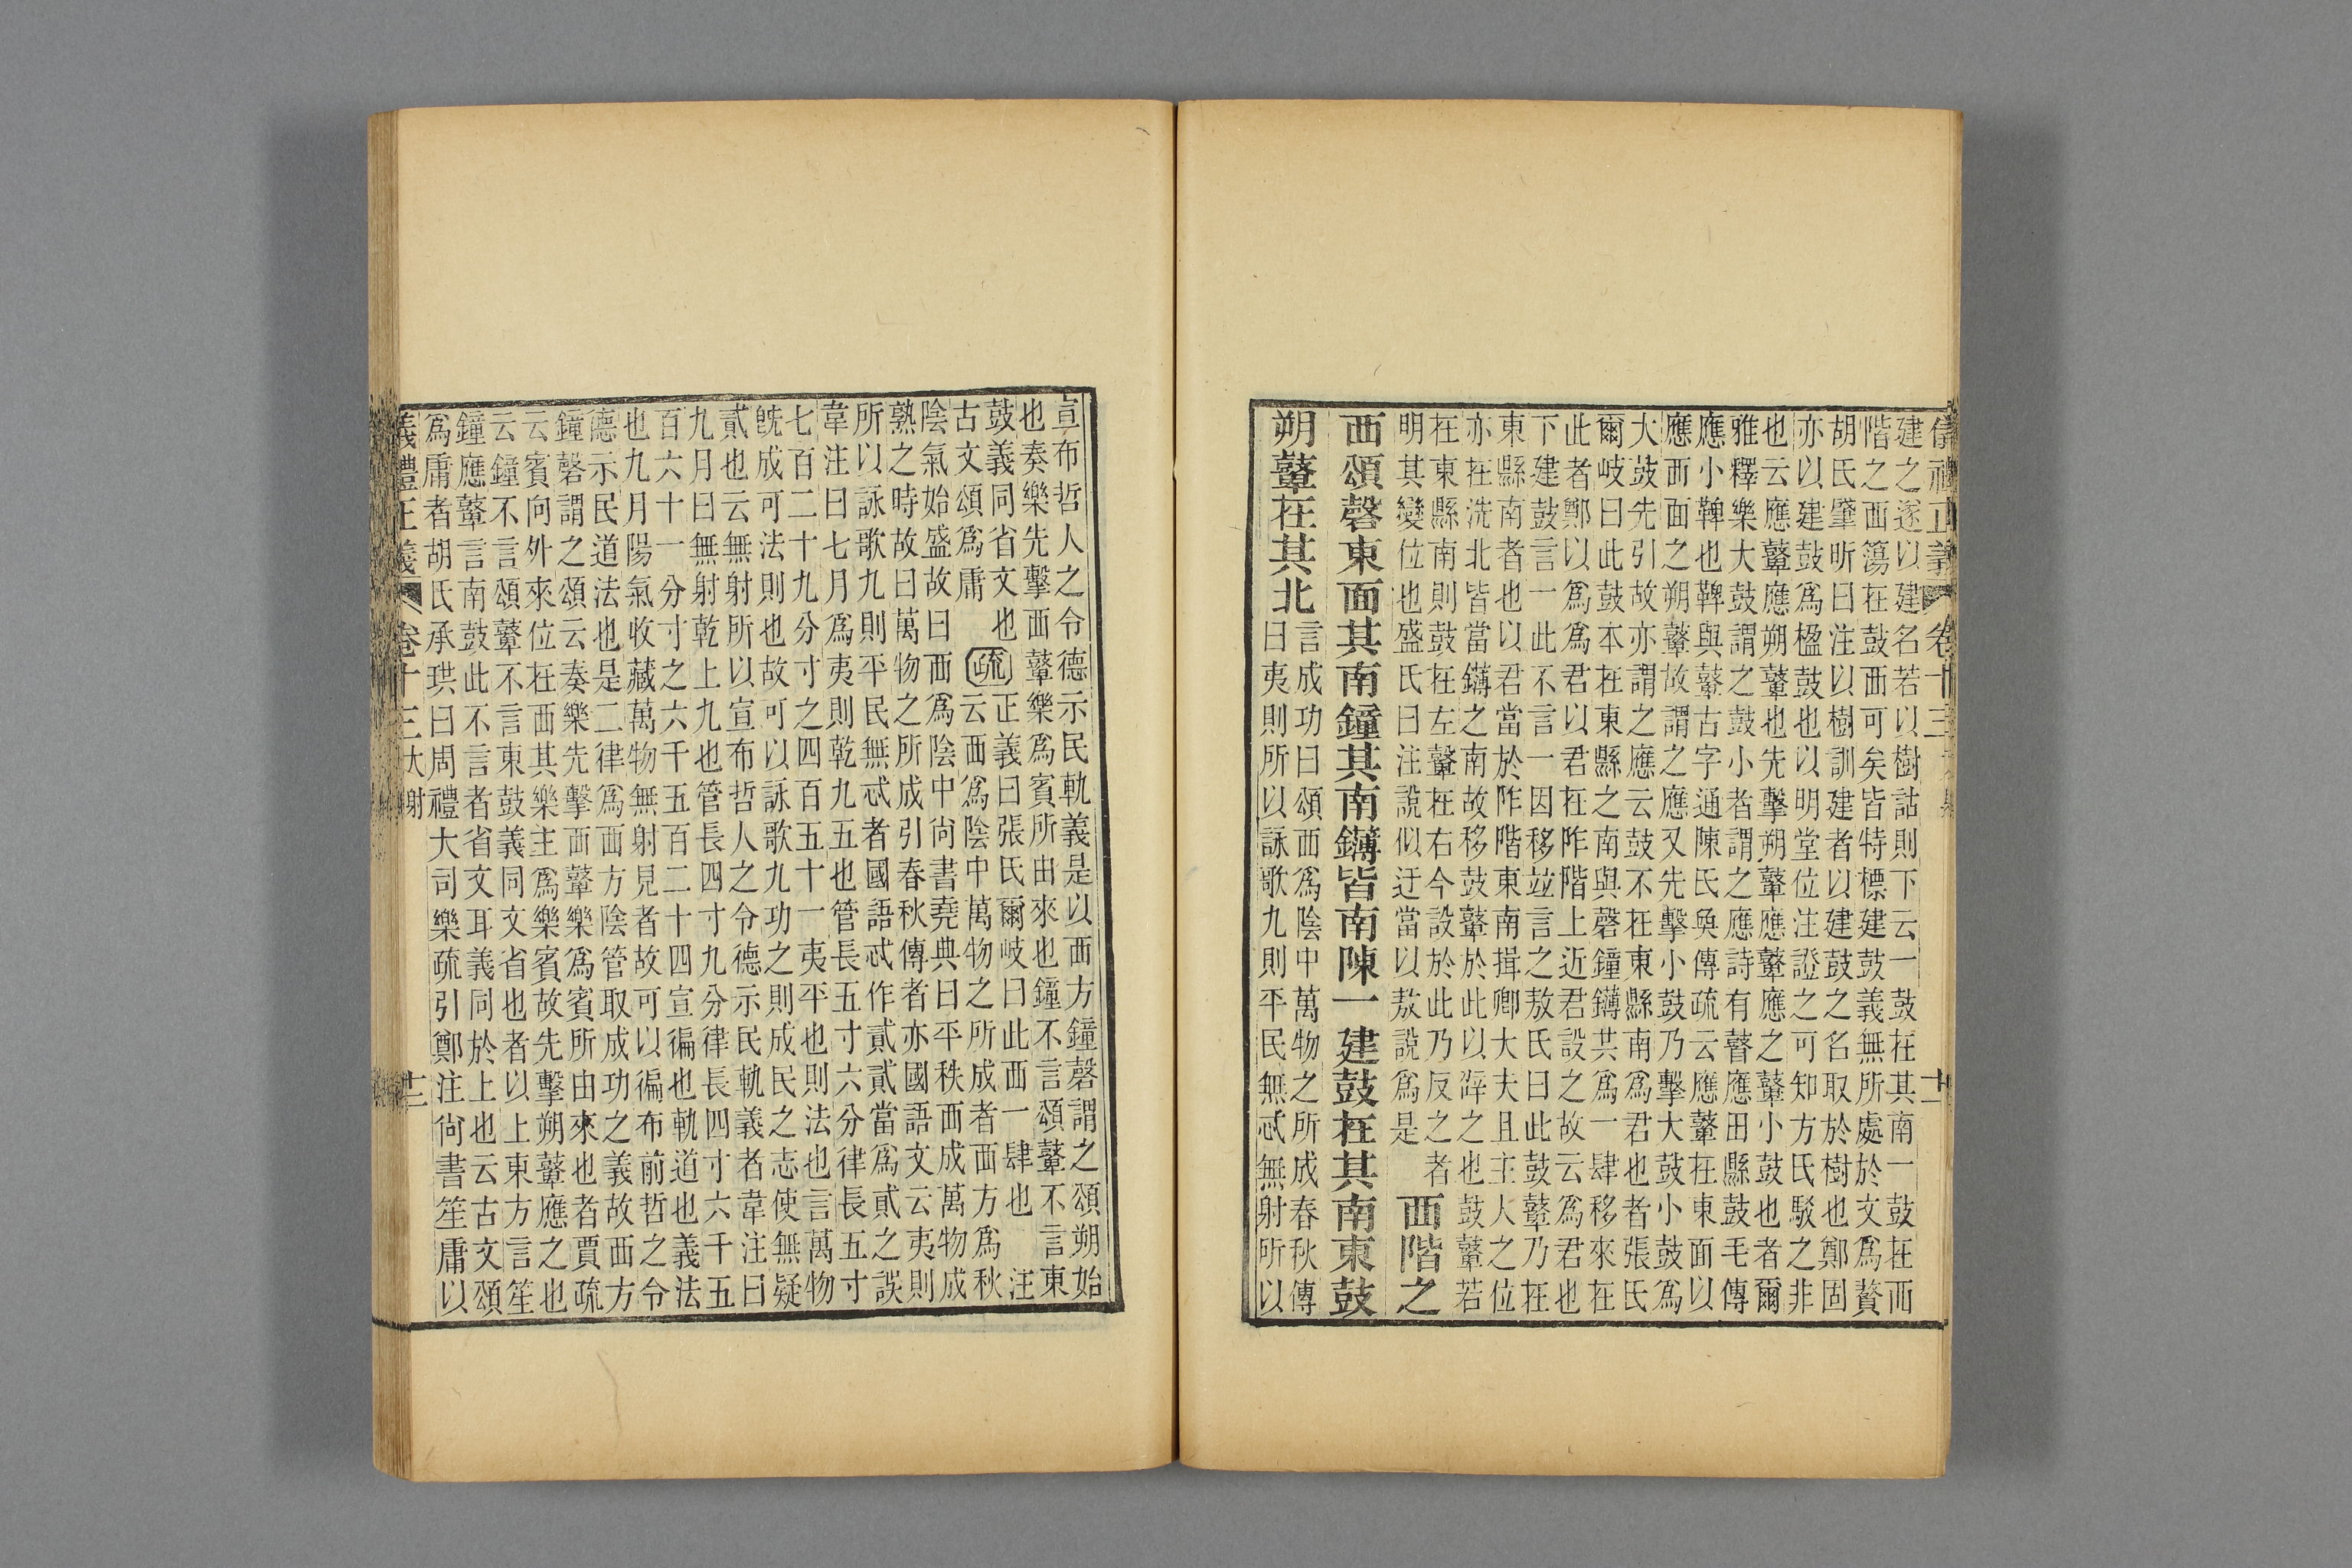 儀禮正義 卷十三
建之遂以建名若以樹詁則下云一鼓在其南一鼓在西
階之西簜在鼓西可矣皆特標建鼓義無所處於文爲贅
胡氏肇昕曰注以樹訓建者以建鼓之名取於樹也鄭固
亦以建鼓爲楹鼓也以明堂位注證之可知方氏駁之非
也云應鼙應朔鼙也先擊朔鼙應鼙應之鼙小鼓也者爾
雅釋樂大鼓謂之鼓小者謂之應詩有瞽應田縣鼓毛傳
應小鞞也鞞與鼙古字通陳氏奐傳疏云應鼙在東面以
應西面之朔鼙故謂之應又先擊小鼓乃擊大鼓小鼓爲
大鼓先引故亦謂之應云鼓不在東縣南爲君也者張氏
爾岐曰此鼓本在東縣之南與磬鐘鑮共爲一肆移來在
此者鄭以爲爲君以君在阼階上近君設之故云爲君也
下建鼓言一此不言一因移竝言之敖氏曰此鼓鼙乃在
東縣南者也以君當於阼階東南揖卿大夫且主人之位
亦在洗北皆當鑮之南故移鼓鼙於此以辟之也鼓鼙若
在東縣南則鼓在左鼙在右今設於此乃反之者
明其變位也盛氏曰注說似迂當以敖說爲是
西階之
西頌磬東面其南鐘其南鑮皆南陳一建鼓在其南東鼓
朔鼙在其北
言成功曰頌西爲陰中萬物之所成春秋傳
曰夷則所以詠歌九則平民無忒無射所以
宣布哲人之令德示民軌義是以西方鐘磬謂之頌朔始
也奏樂先擊西鼙樂爲賓所由來也鐘不言頌鼙不言東
鼓義同省文也
古文頌爲庸
疏
正義曰張氏爾岐曰此西一肆也 注
云西爲陰中萬物之所成者西方爲秋
陰氣始盛故曰西爲陰中尙書堯典曰平秩西成萬物成
熟之時故曰萬物之所成引春秋傳者亦國語文云夷則
所以詠歌九則平民無忒者國語忒作貳貳當爲貣之誤
韋注曰七月爲夷則乾九五也管長五寸六分律長五寸
七百二十九分寸之四百五十一夷平也則法也言萬物
旣成可法則也故可以詠歌九功之則成民之志使無疑
貳也云無射所以宣布哲人之令德示民軌義者韋注曰
九月曰無射乾上九也管長四寸九分律長四寸六千五
百六十一分寸之六千五百二十四宣徧也軌道也義法
也九月陽氣收藏萬物無射見者故可以徧布前哲之令
德示民道法也是二律爲西方陰管取成功之義故西方
鐘磬謂之頌云奏樂先擊西鼙樂爲賓所由來也者賈疏
云賓向外來位在西其樂主爲樂賓故先擊朔鼙應之也
云鐘不言頌鼙不言東鼓義同文省也者以上東方言笙
鐘應鼙言南鼓此不言者省文耳義同於上也云古文頌
爲庸者胡氏承珙曰周禮大司樂疏引鄭注尙書笙庸以
義禮正義 卷十三 大射